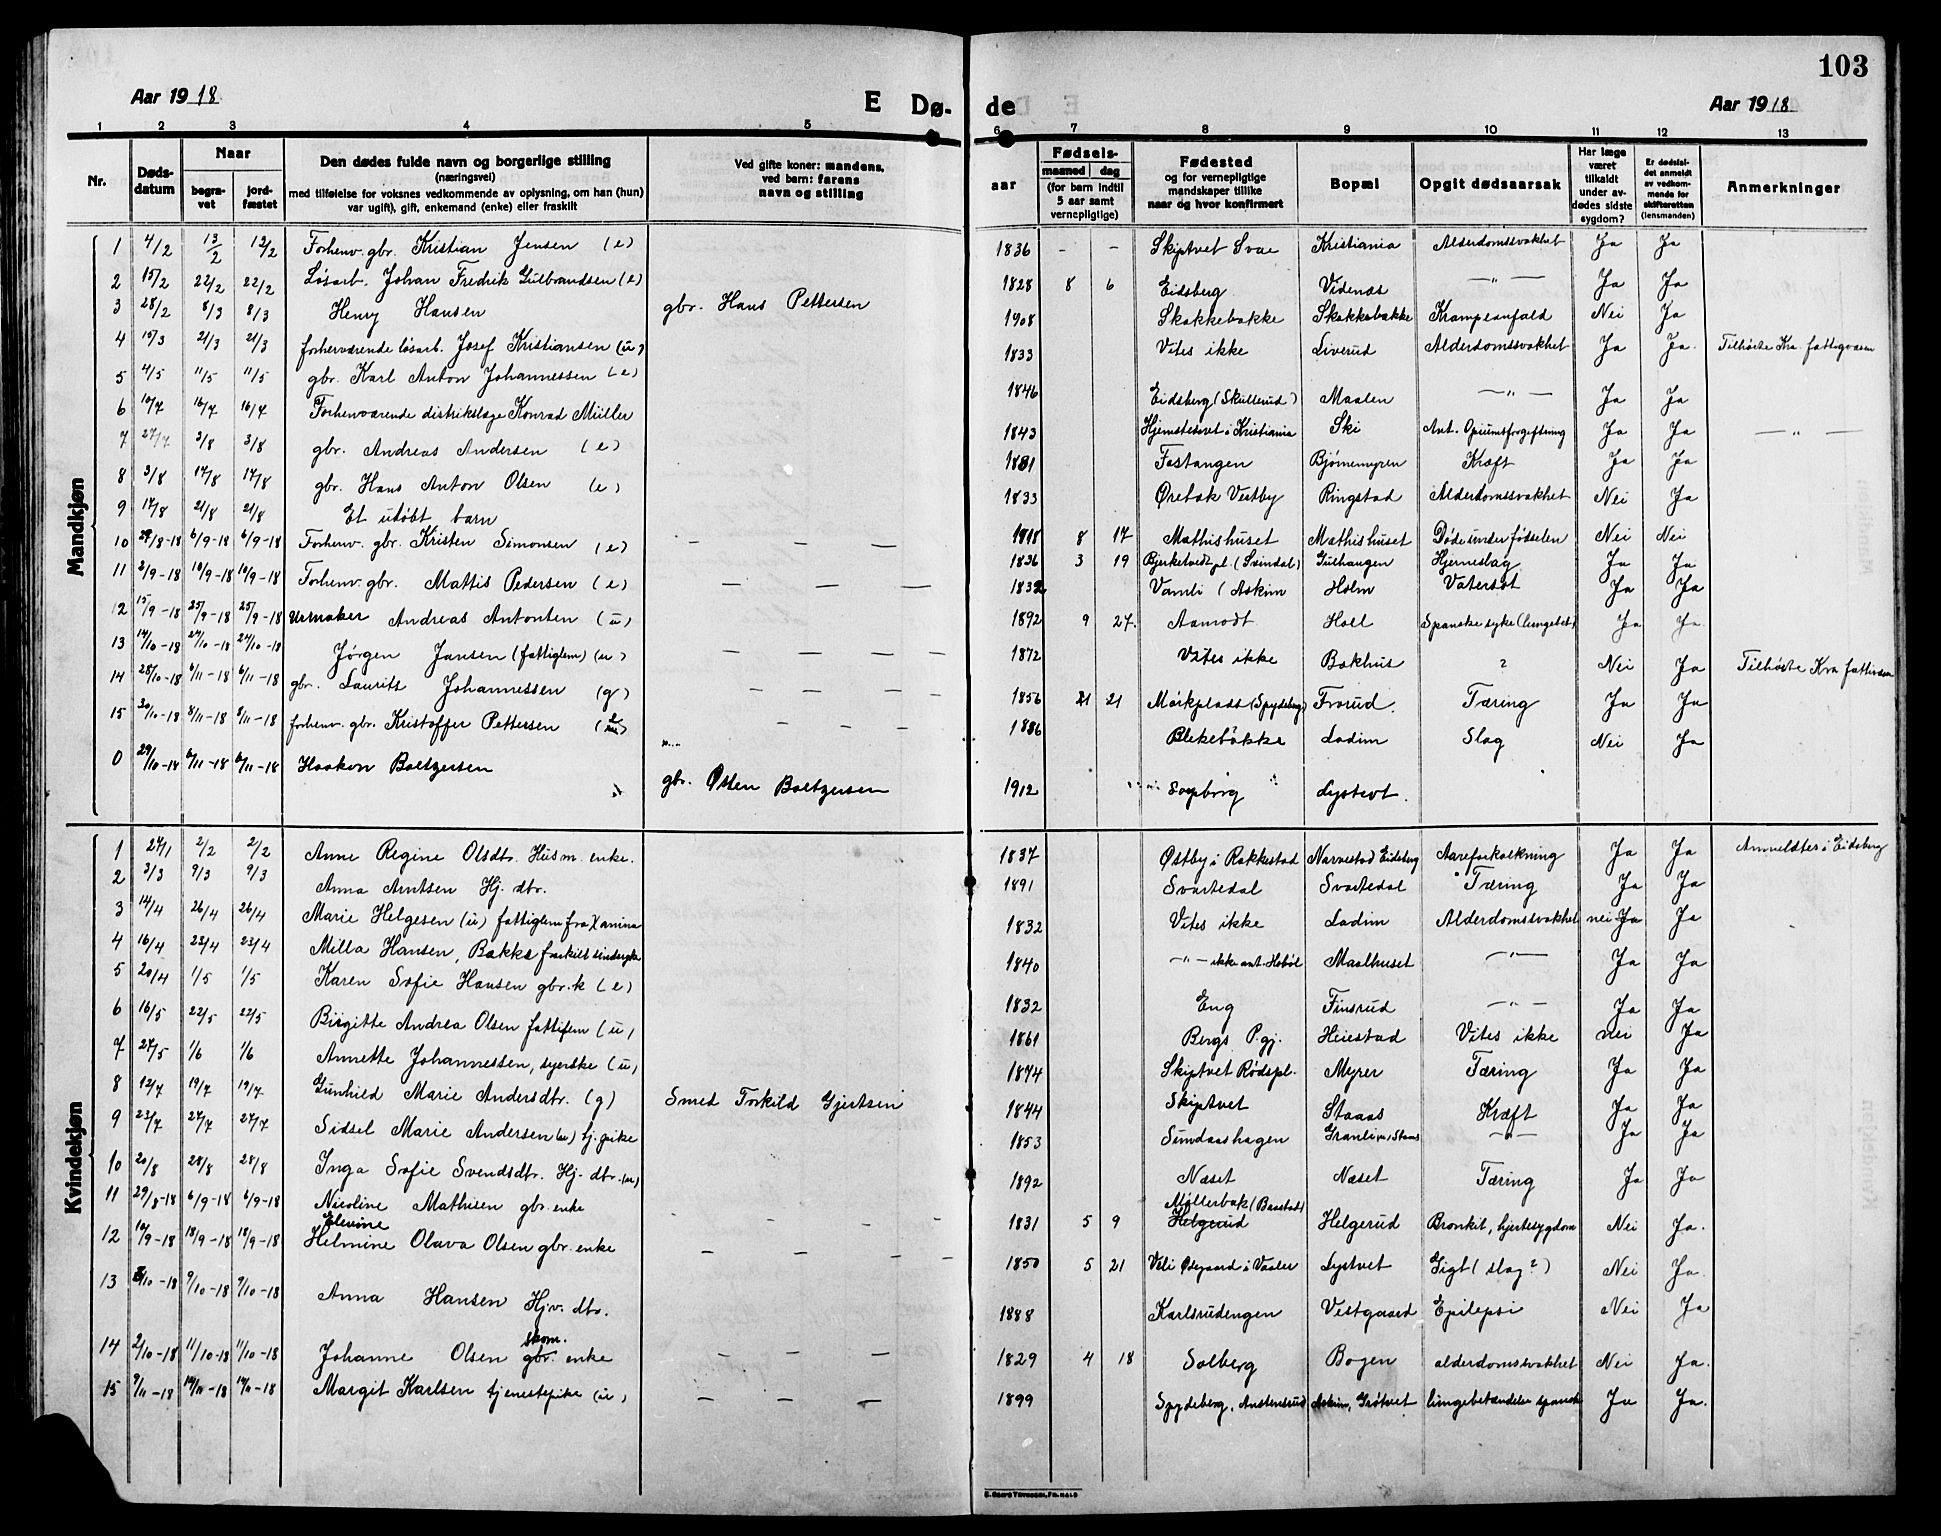 103
Aar 1918 E Dø- de Aar 1918
1 2 3 4 5 6 7 8 9 10 11 12 13
Nr. Døds-datum Naar begra-vet jord-fæstet Den dødes fulde navn og borgerlige stilling (næringsvei) med tilføielse for voksnes vedkommende av oplysning, om han (hun) var ugift), gift, enkemand (enke) eller fraskilt Ved gifte koner: mandens, ved barn: farens navn og stilling aar Fødsels- maaned dag (for barn indtil 5 aar samt vernepligtige) Fødested og for vernepligtige mandskaper tillike naar og hvor konfirmert Bopæl Opgit dødsaarsak Har læge været tilkaldt under av-dødes sidste sygdom? Er dødsfal-det anmeldt av vedkom-mende for skifteretten (lensmanden) Anmerkninger
Mandkjøn
1 4/2 13/2 12/2 Forhenv. gbr. Kristian Jensen (e) 1836 - - Skiptvet Svae Kristiania Alderdomssvakhet Ja Ja
2 15/2 22/2 22/2 Løsarb. Johan Fredrik Gulbrandsen (e) 1828 8 6 Eidsberg Videnæs -"- Ja Ja
3 28/2 8/3 8/3 Henry Hansen gbr. Hans Pettersen 1908 Skakkebakke Skakkebakke Krampeanfald Nei Ja
4 15/3 21/3 21/3 forherværende løsarb. Josef Kristiansen (u) 1833 Vites ikke Liverud Alderdomssvakhet Ja Ja. Tilhørte Kra. fattigvæsen
5 4/5 11/5 11/5 gbr. Karl Anton Johannessen (e) 1846 Eidsberg (Skullerud) Maalen -"- Ja Ja
6 10/7 16/7 16/7 Forhenværende distriktslæge Konrad Müller 1843 Hjemstedet i Kristiania Ski Ant. Opiumsforgiftning Ja Ja -"-
7 27/7 3/8 3/8 gbr. Andreas Andersen (e) 1831 Fostangen Bjørnemyren Kræft Ja Ja
8 3/8 17/8 17/8 gbr. Hans Anton Olsen (e) 1833 Ørebæk Vestby Ringstad Alderdomssvakhet Nei Ja
9 17/8 21/8 21/8 Et udøbt barn 1918 8 17 Mathishuset Mathishuset Døde under fødselen Nei Nei
10 29/8-18 6/9-18 6/9-18 Forhenv. gbr. Kristen Simonsen (e) - - - 1836 3 19 Bjerketvedt pl. (Svindal) Gulhaugen Hjerneslag Ja Ja
11 2/9-18 10/9-18 10/9-18 Forhenv. gbr. Mattis Pedersen (e) - - - 1832 Vamli (Askim Holm Vatersot Ja Ja
12 15/9-18 25/9-18 25/9-18 Urmaker Andreas Antonsen (u) 1892 9 27. Aamodt Holl Spanske syke (lungebet) Ja Ja.
13 14/10-18 24/10-18 24/10-18 Jørgen Jansen (fattiglem) (u) - - - 1872 Vites ikke Bakhus ? Nei Ja Tilhørte Kra fattivæsen
14 28/10-18 6/11-18 6/11-18 gbr. Laurits Johannessen (g) - - - - 1856 21 Mørkplads (Spydeberg) Frorud. Tæring Ja Ja
15 30/10-18 8/11-18 8/11-18 forhenv. gbr. Kristoffer Pettersen - - - 1836 Blekebakke Ladim Slag Nei Ja
0 29/10-18 6/11-18 6/11-18 Haakon Baltzersen gbr. Osten Baltzersen 1912 Lystvet.
Kvindekjøn
1 24/1 2/2 2/2 Anne Regine Olsdtr. Husm. enke. 1837 Østby i Rakkestad Narvestad Eidsberg Aareforkalkning Ja Ja Anmeldtes i Eidsberg
2 3/3 9/3 9/3 Anna Arntsen Hj. dtr. 1891 Svartedal Svartedal Tæring Ja Ja
3 14/4 26/4 26/4 Marie Helgesen (u) fattiglem fra Xania 1832 Vites ikke Ladim Alderdomssvakhet nei Ja Ja
4 16/4 23/4 23/4 Milla Hansen, Bakke 1840 -"- ikke ant. Hobøl Maalhuset -"- Ja Ja
5 20/4 1/5 1/5 Karen Sofie Hansen gbr. k (e) 1832 Eng Finsrud -"- Ja Ja
6 16/5 22/5 22/5 Birgitte Andrea Olsen fattilem (u) 1861 Bergs P.gj. Heiestad Vites ikke nei Ja
7 27/5 1/6 1/6 Annette Johannessen, syerske (u) 1874 Skiptvet Rødspl. Myrer Tæring Ja Ja
8 12/7 19/7 19/7 Gunhild Marie Andersdtr. (g) Smed Torkild Gjertsen 1844 Skiptvet Staaas Kræft Ja Ja
9 23/7 27/7 27/7 Sidsel Marie Andersen (u) tj. pike 1853 Sundaashagen Granli -"- Ja Ja
10 20/8 28/8 28/8 Inga Sofie Svendsdtr. Hj. dtr. (u) 1892 Næset Næset Tæring Ja Ja
11 29/8-18 6/9-18 6/9-18 Nicoline Mathisen gbr. enke - - - - 1831 5 9 Møllerbak (Baastad) Helgerud Helgerud Bronkit, hjertesygdom Nei Ja.
12 10/9-18 18/9-18 18/9-18 Elevine Helmine Olava Olsen gbr. enke - - - - 1850 5 21 Veli Ødegaard i Vaaler Lystvet Gigt (slag?) Nei Ja.
13 3/10-18 9/10-18 9/10-18 Anna Hansen Hjv. dtr. 1888 Karlsrudengen Vestgaard Epilepsi Nei Ja
14 2/10-18 11/10-18 11/10-18 Johanne Olsen skom. gbr. enke - - - 1829 4 18 Solberg Bogen alderdomssvakhet Nei Ja.
15 9/11-18 14/11-18 14/11-18 Margit Karlsen tjenestepike (u) - - - 1899 Spydeberg, Anstensrud Askim, Grøtvet lungebetændelse spanske Ja Ja.